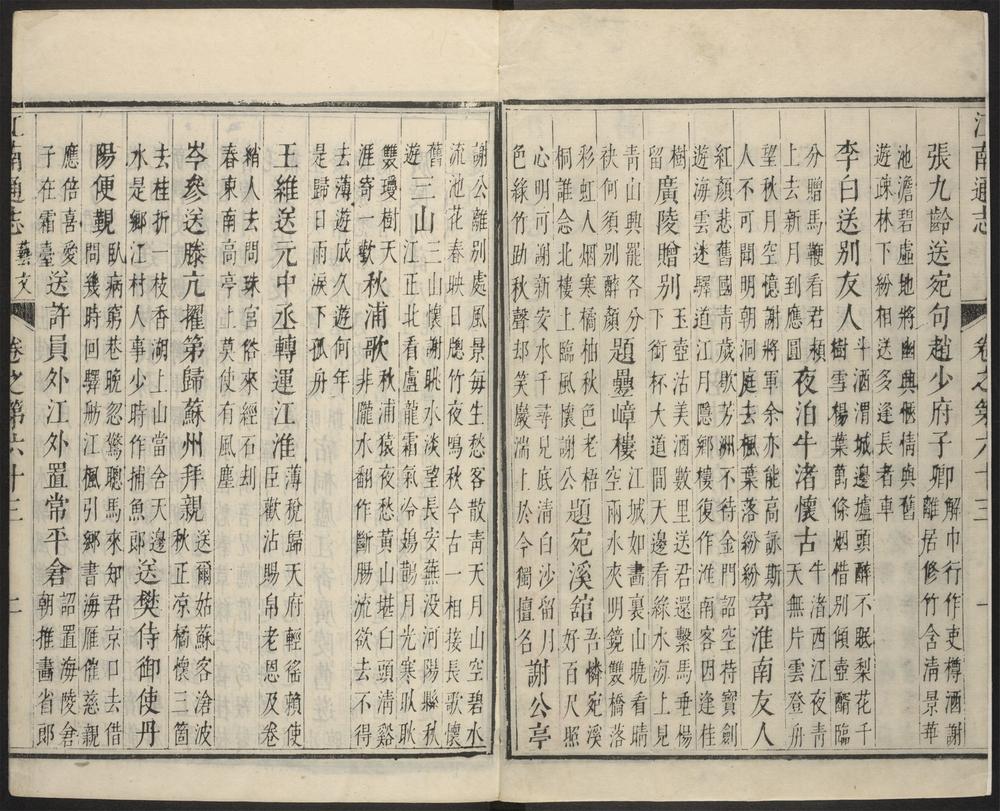 江南通志 卷之第六十三 一
張九齡送宛句趙少府子卿
解巾行作吏樽酒謝
離居修竹含清景華
池澹碧虛地將幽興愜情與舊
遊疎林下紛相送多逢長者車
李白送別友人
斗酒渭城邊壚頭醉不眠梨花千
樹雪楊葉萬條烟惜別傾壺醑臨
分贈馬鞭看君潁
上去新月到應圓
夜泊牛渚懷古
牛渚西江夜青
天無片雲登舟
望秋月空憶謝將軍余亦能高詠斯
人不可聞明朝洞庭去楓葉落紛紛
寄淮南友人
紅顏悲舊國青歲歇芳洲不待金門詔空持寶劍
遊海雲迷驛道江月隱鄉樓復作淮南客因逢桂
樹
留
廣陵贈別
玉壺沽美酒數里送君還繫馬垂楊
下銜杯大道間天邊看綠水海上見
青山興罷各分
袂何須別醉顏
題疊嶂樓
江城如畫裏山曉看晴
空兩水夾明鏡雙橋落
彩虹人烟寒橘柚秋色老梧
桐誰念北樓上臨風懷謝公
題宛溪舘
吾憐宛溪
好百尺照
心明可謝新安水千尋見底清白沙留月
色綠竹助秋聲却笑嚴湍上於今獨擅名
謝公亭
謝公離別處風景每生愁客散青天月山空碧水
流池花春映日牕竹夜鳴秋今古一相接長歌懷
舊
遊
三山
三山懷謝朓水淡望長安蕪没河陽縣秋
江正北看盧龍霜氣冷鳷鵲月光寒耿耿
雙瓊樹天
涯寄一歎
秋浦歌
秋浦猿夜愁黃山堪白頭清谿
非隴水翻作斷腸流欲去不得
去薄遊成久遊何年
是歸日雨淚下孤舟
王維送元中丞轉運江淮
薄稅歸天府輕徭賴使
臣歡沾賜帛老恩及卷
綃人去問珠宮俗來經石刦
春東南高亭上莫使有風塵
岑參送滕亢擢第歸蘇州拜親
送爾姑蘇客滄波
秋正凉橘懷三箇
去桂折一枝香湖上山當舍天邊
水是鄉江村人事少時作捕魚郎
送樊侍御使丹
陽便覲
臥病窮巷晚忽驚驄馬來知君京口去借
問幾時回驛舫江楓引鄉書海雁催慈親
應倍喜愛
子在霜臺
送許員外江外置常平倉
詔置海陵倉
朝推畫省郎
江南通志 藝文 卷之第六十三 二